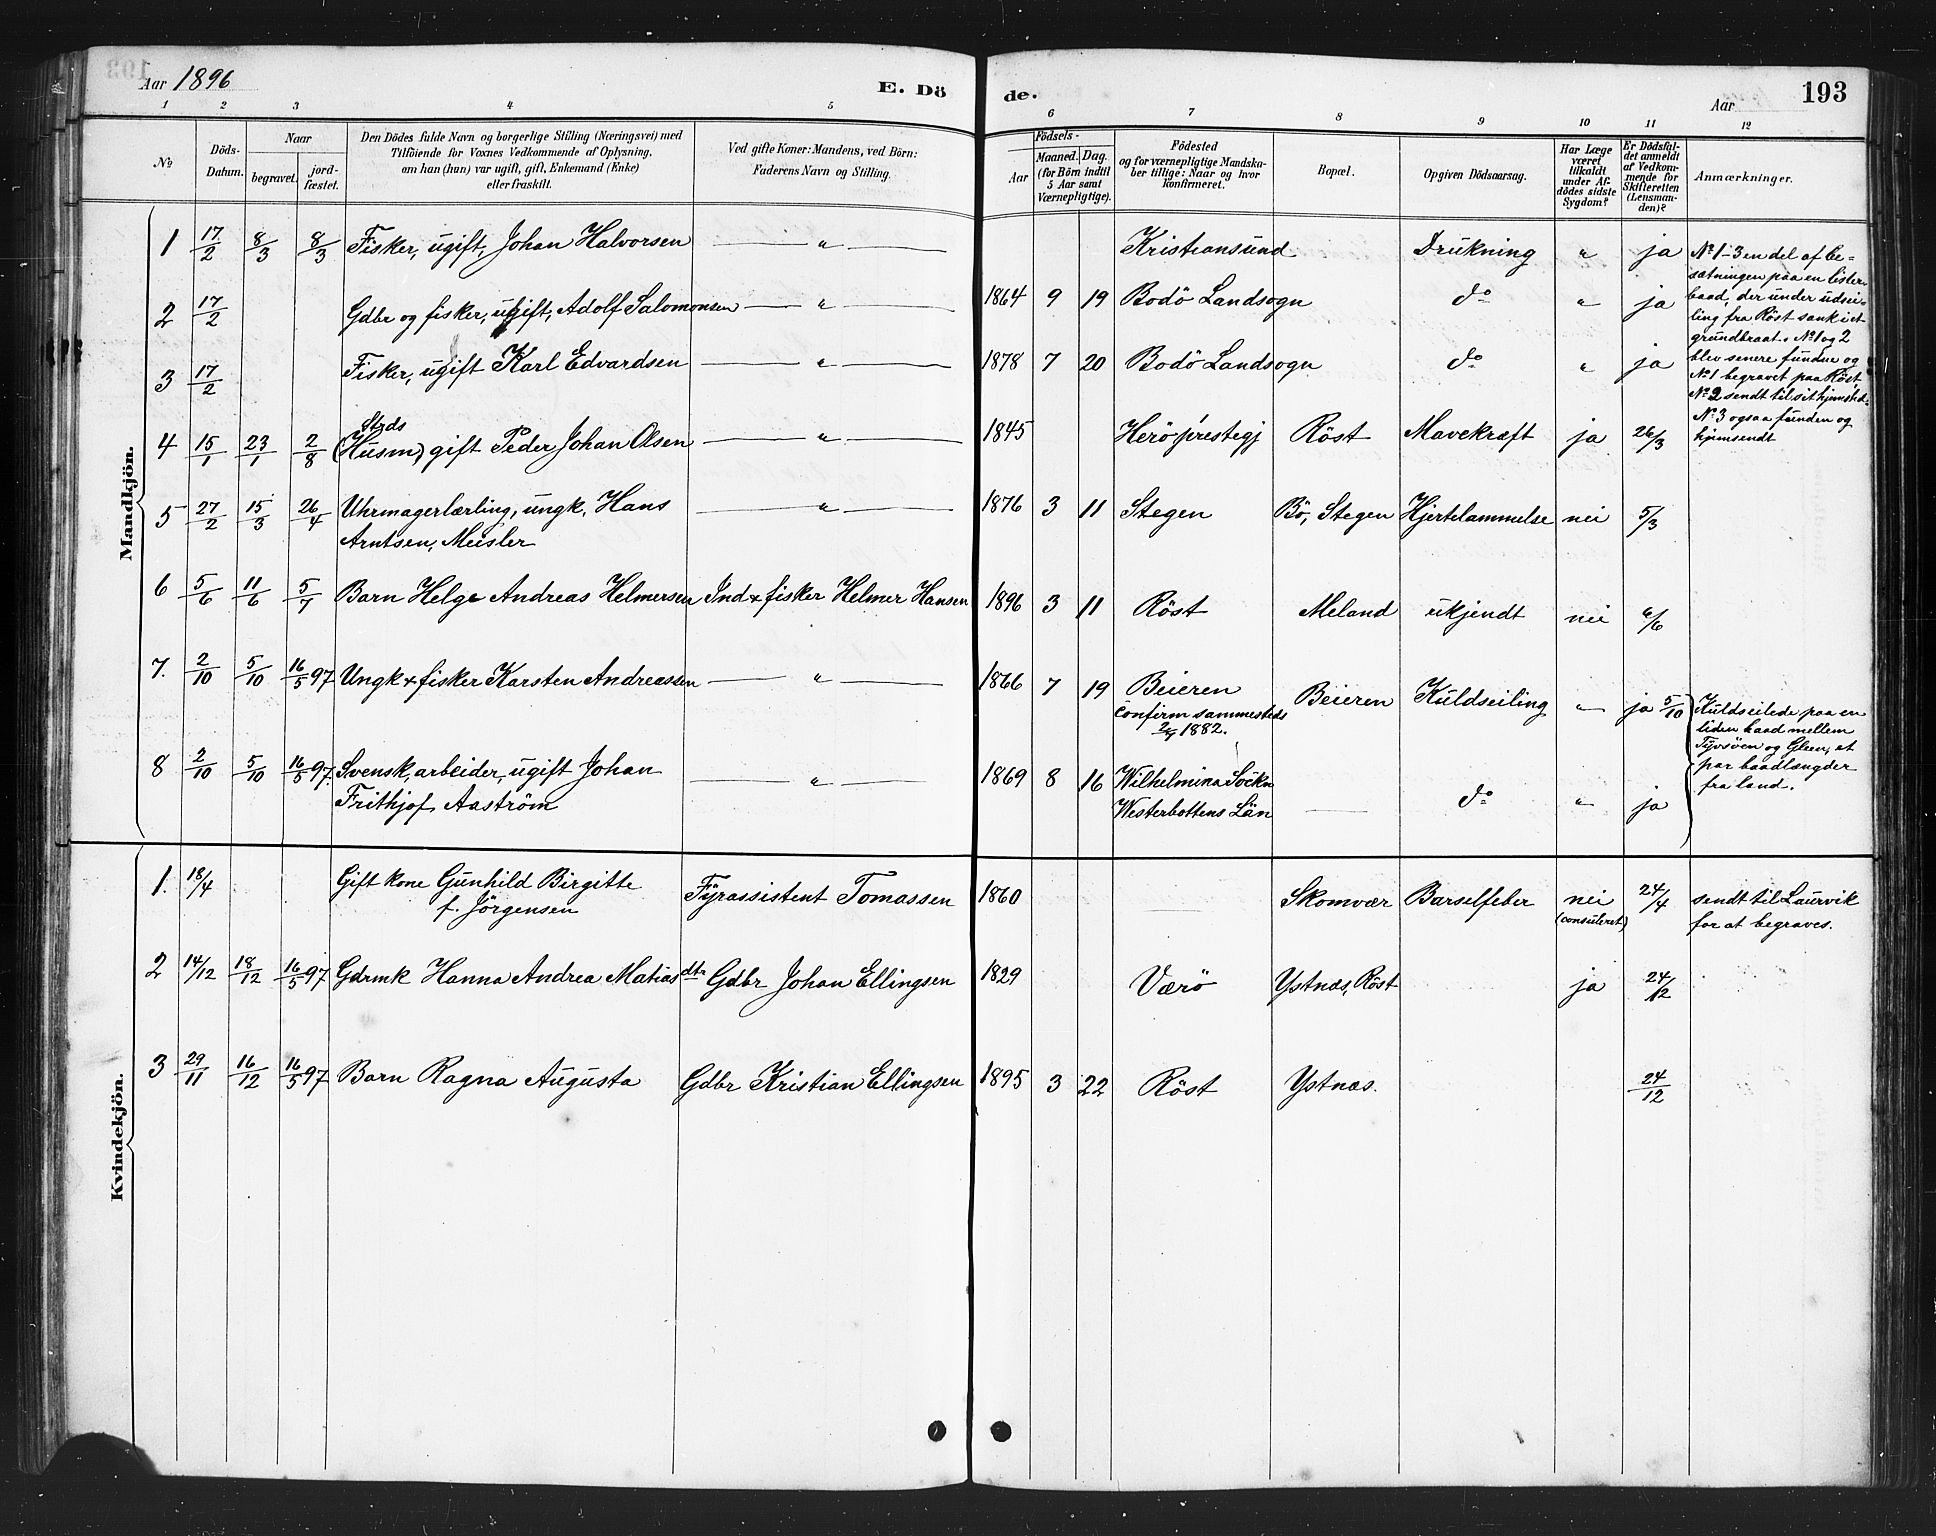 Aar 1896
E. Dö
de.
Aar
193
1 2 3 4 5 6 7 8 9 10 11 12
No
Döds-Datum.
Naar
begravet.
jord-fæstet.
Den Dödes fulde Navn og borgerlige Stilling (Næringsvei) med
Tilföiende for Voxnes Vedkommende af Oplysning,
om han (hun) var ugift, gift, Enkemand (Enke)
eller fraskilt.
Ved gifte Koner: Mandens, ved Börn:
Faderens Navn og Stilling.
Födsels-
Aar
Maaned. Dag.
(for Börn indtil
5 Aar samt
Værnepligtige).
Födested
og for værnepligtige Mandska-
ber tillige: Naar og hvor
konfirmeret.
Bopæl.
Opgiven Dödsaarsag.
Har Læge
været
tilkaldt
under Af-
dödes sidste
Sygdom?
Er Dödsfal-
det anmeldt
af Vedkom-
mende for
Skifteretten
(Lensman-
den)?
Anmærkninger.
Mandkjön.
1 17/2 8/3 8/3 Fisker, ugift, Johan Halvorsen — " — Kristiansund Drukning " ja
2 17/2 Gdbr og fisker, ugift, Adolf Salomonsen — " — 1864 9 19 Bodö Landsogn do " ja
3 17/2 Fisker, ugift Karl Edvardsen — " — 1878 7 20 Bodö Landsogn do " ja
No 1-3 en del af be-
sætningen paa en lister-
baad, der under udsei-
ling fra Röst sank i et
grundbraat. No 1 og 2
blev senere fundne og
No 1 begravet paa Röst,
No 2 sendt til sit hjemsted.
No 3 ogsaa funden og
hjemsendt
Stads
4 15/1 23/1 2/8 (Husm) gift Peder Johan Olsen — " — 1845 Herö prestegj Röst Mavekræft ja 26/3
5 27/2 15/3 26/4 Uhrmagerlærling, ungk, Hans — " — 1876 3 11 Stegen Bö, Stegen Hjertelammelse nei 5/3
Arntsen, Meisler
6 5/6 11/6 5/7 Barn Helge Andreas Helmersen Ind & fisker Helmer Hansen 1896 3 11 Röst Meland ukjendt nei 6/6
7. 2/10 5/10 16/5 97 Ungk & fisker Karsten Andreassen — " — 1866 7 19 Beieren Beieren Kuldseiling " ja 5/10
Confirm sammesteds
1882.
Kuldseilede paa en
liden baad mellem
Tyvsöen og Gleen, et
par baadlængder
fra land.
8 2/10 5/10 16/5 97. Svensk, arbeider, ugift Johan — " — 1869 8 16 Wilhelmina Sockn — do " ja
Frithjof Aaström Westerbottens Län
Kvindekjön.
1. 18/4 Gift kone Gunhild Birgitte Fyrassistent Tomassen 1860 — Skomvær Barselfeber nei 24/4 sendt til Laurvik
f. Jörgensen (consuleret) for at begraves.
2 14/12 18/12 16/5 97 Gdrmk Hanna Andrea Matias dtr Gdbr Johan Ellingsen 1829 Værö Ystnæs, Röst ja 24/12
3 29/11 16/12 16/5 97 Barn Ragna Augusta Gdbr Kristian Ellingsen 1895 3 22 Röst Ystnæs. 24/12